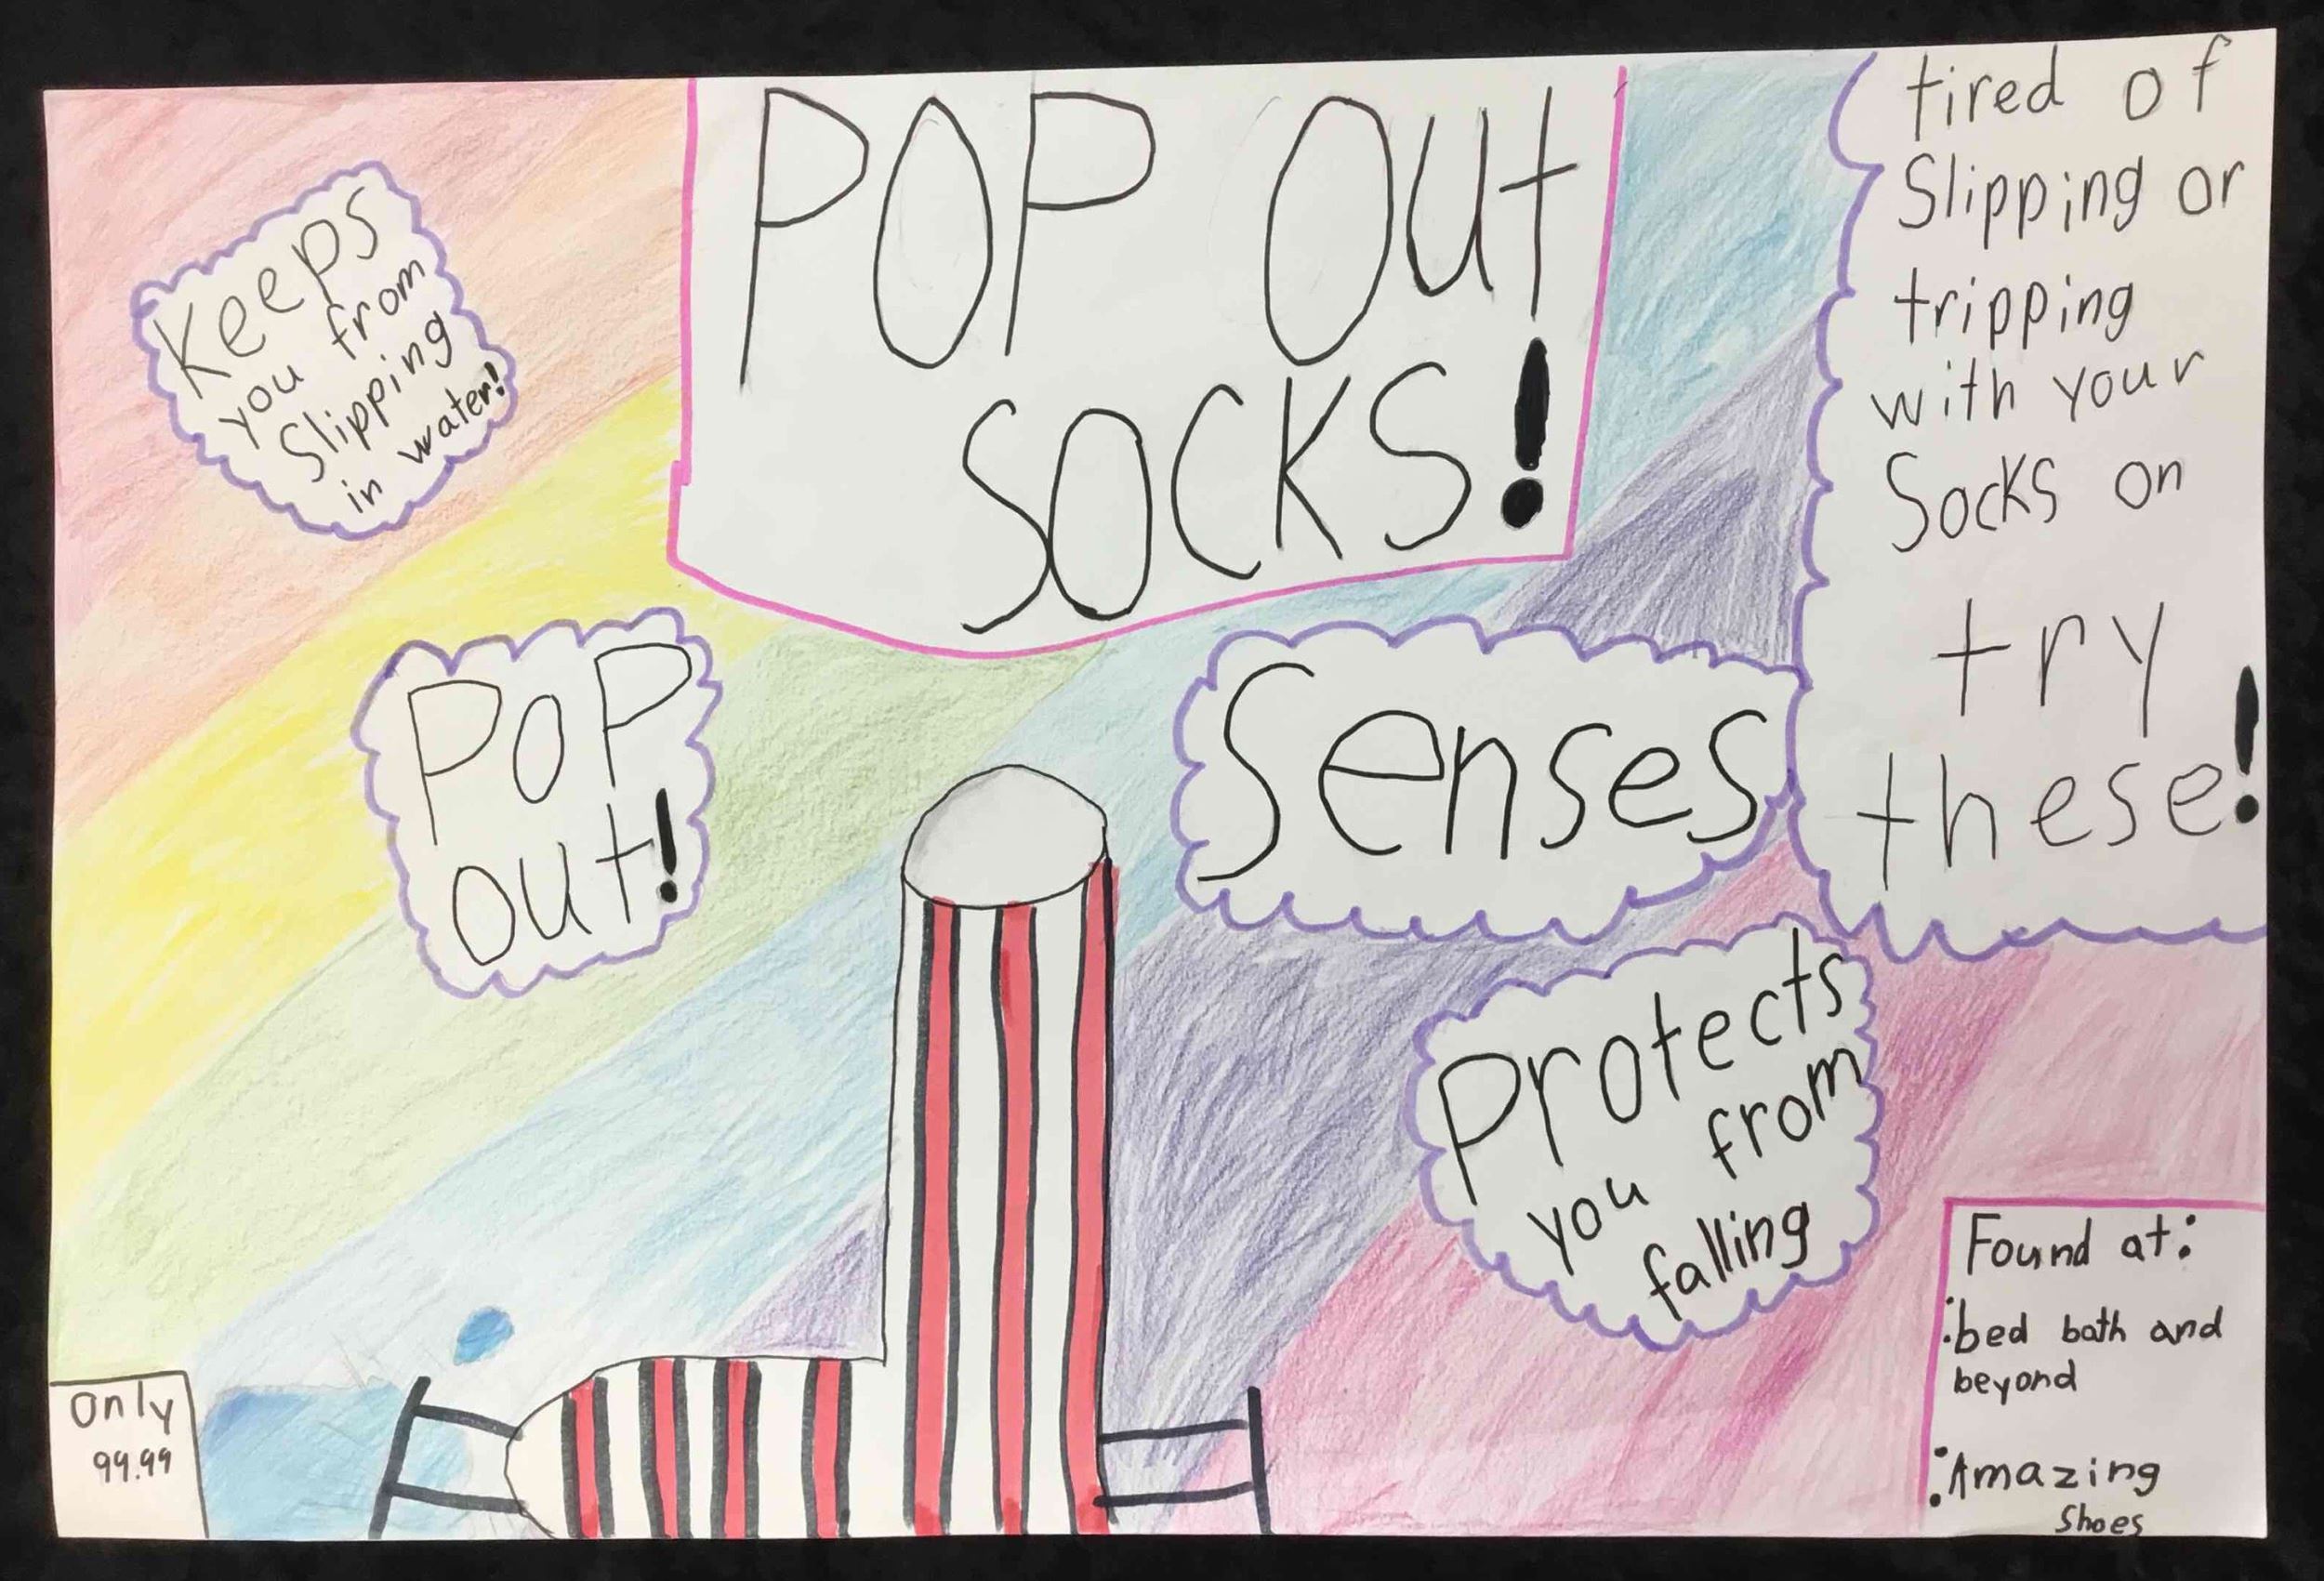 POP Out
SOCKS!
tired of
Slipping or
tripping
with your
Socks on
try
these!
Keeps
you from
Slipping
in water!
POP
out!
Senses
Protects
you from
falling
Only
99.99
Found at:
bed bath and
beyond
Amazing
Shoes